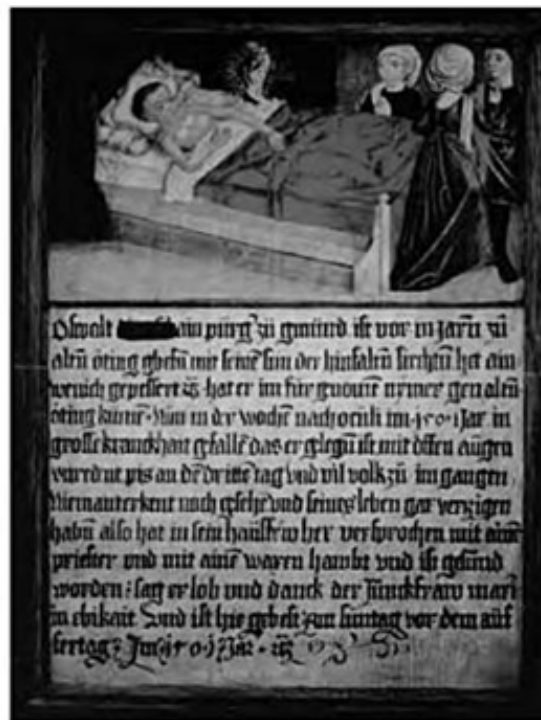 Oswalt ain pürg zü gmünd ist vor in jarn zü
altn öting gbesn mit seinē sun der hinfaltn siechtn hat ain
wenich gepessert hat er im für gnomē nymer gen altn
öting kumē Nun in der wochē nach oculi im 1501 Jar in
grosse kranckhait gfallē das er glegn ist mit offen augen
unrednt pis an dē dritē tag vnd vil volk zü im gangen
Niemant erkent noch gsehē vnd seines leben gar verzigen
habn also hat in sein hausfrw her versprochen mit ainē
priester vnd mit ainē waxen hambt vnd ist gesund
worden sag er lob vnd danck der Junckfraw mari
in ebikait Vnd ist hie gebest zun suntag vor dem auf
fertag Im 1501 Jar